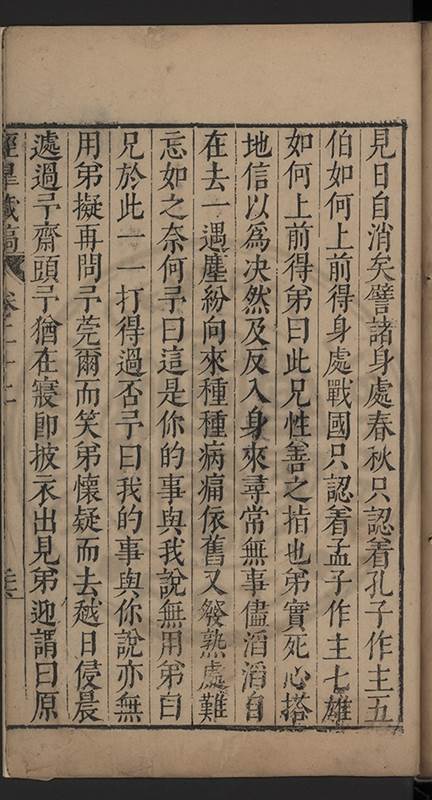 見日自消矣譬諸身處春秋只認着孔子作主五
伯如何上前得身處戰國只認着孟子作主七雄
如何上前得弟曰此兄性善之㫖也弟實死心搭
地信以爲决然及反入身來尋常無事儘滔滔自
在去一遇塵紛向來種種病痛依舊又發熟處難
忘如之奈何予曰這是你的事與我說無用弟曰
兄於此一一打得過否予曰我的事與你說亦無
用弟擬再問予莞爾而笑弟懷疑而去越日侵晨
遽過予齋頭予猶在寢卽披衣出見弟迎謂曰原
經臯藏稿 卷二十二